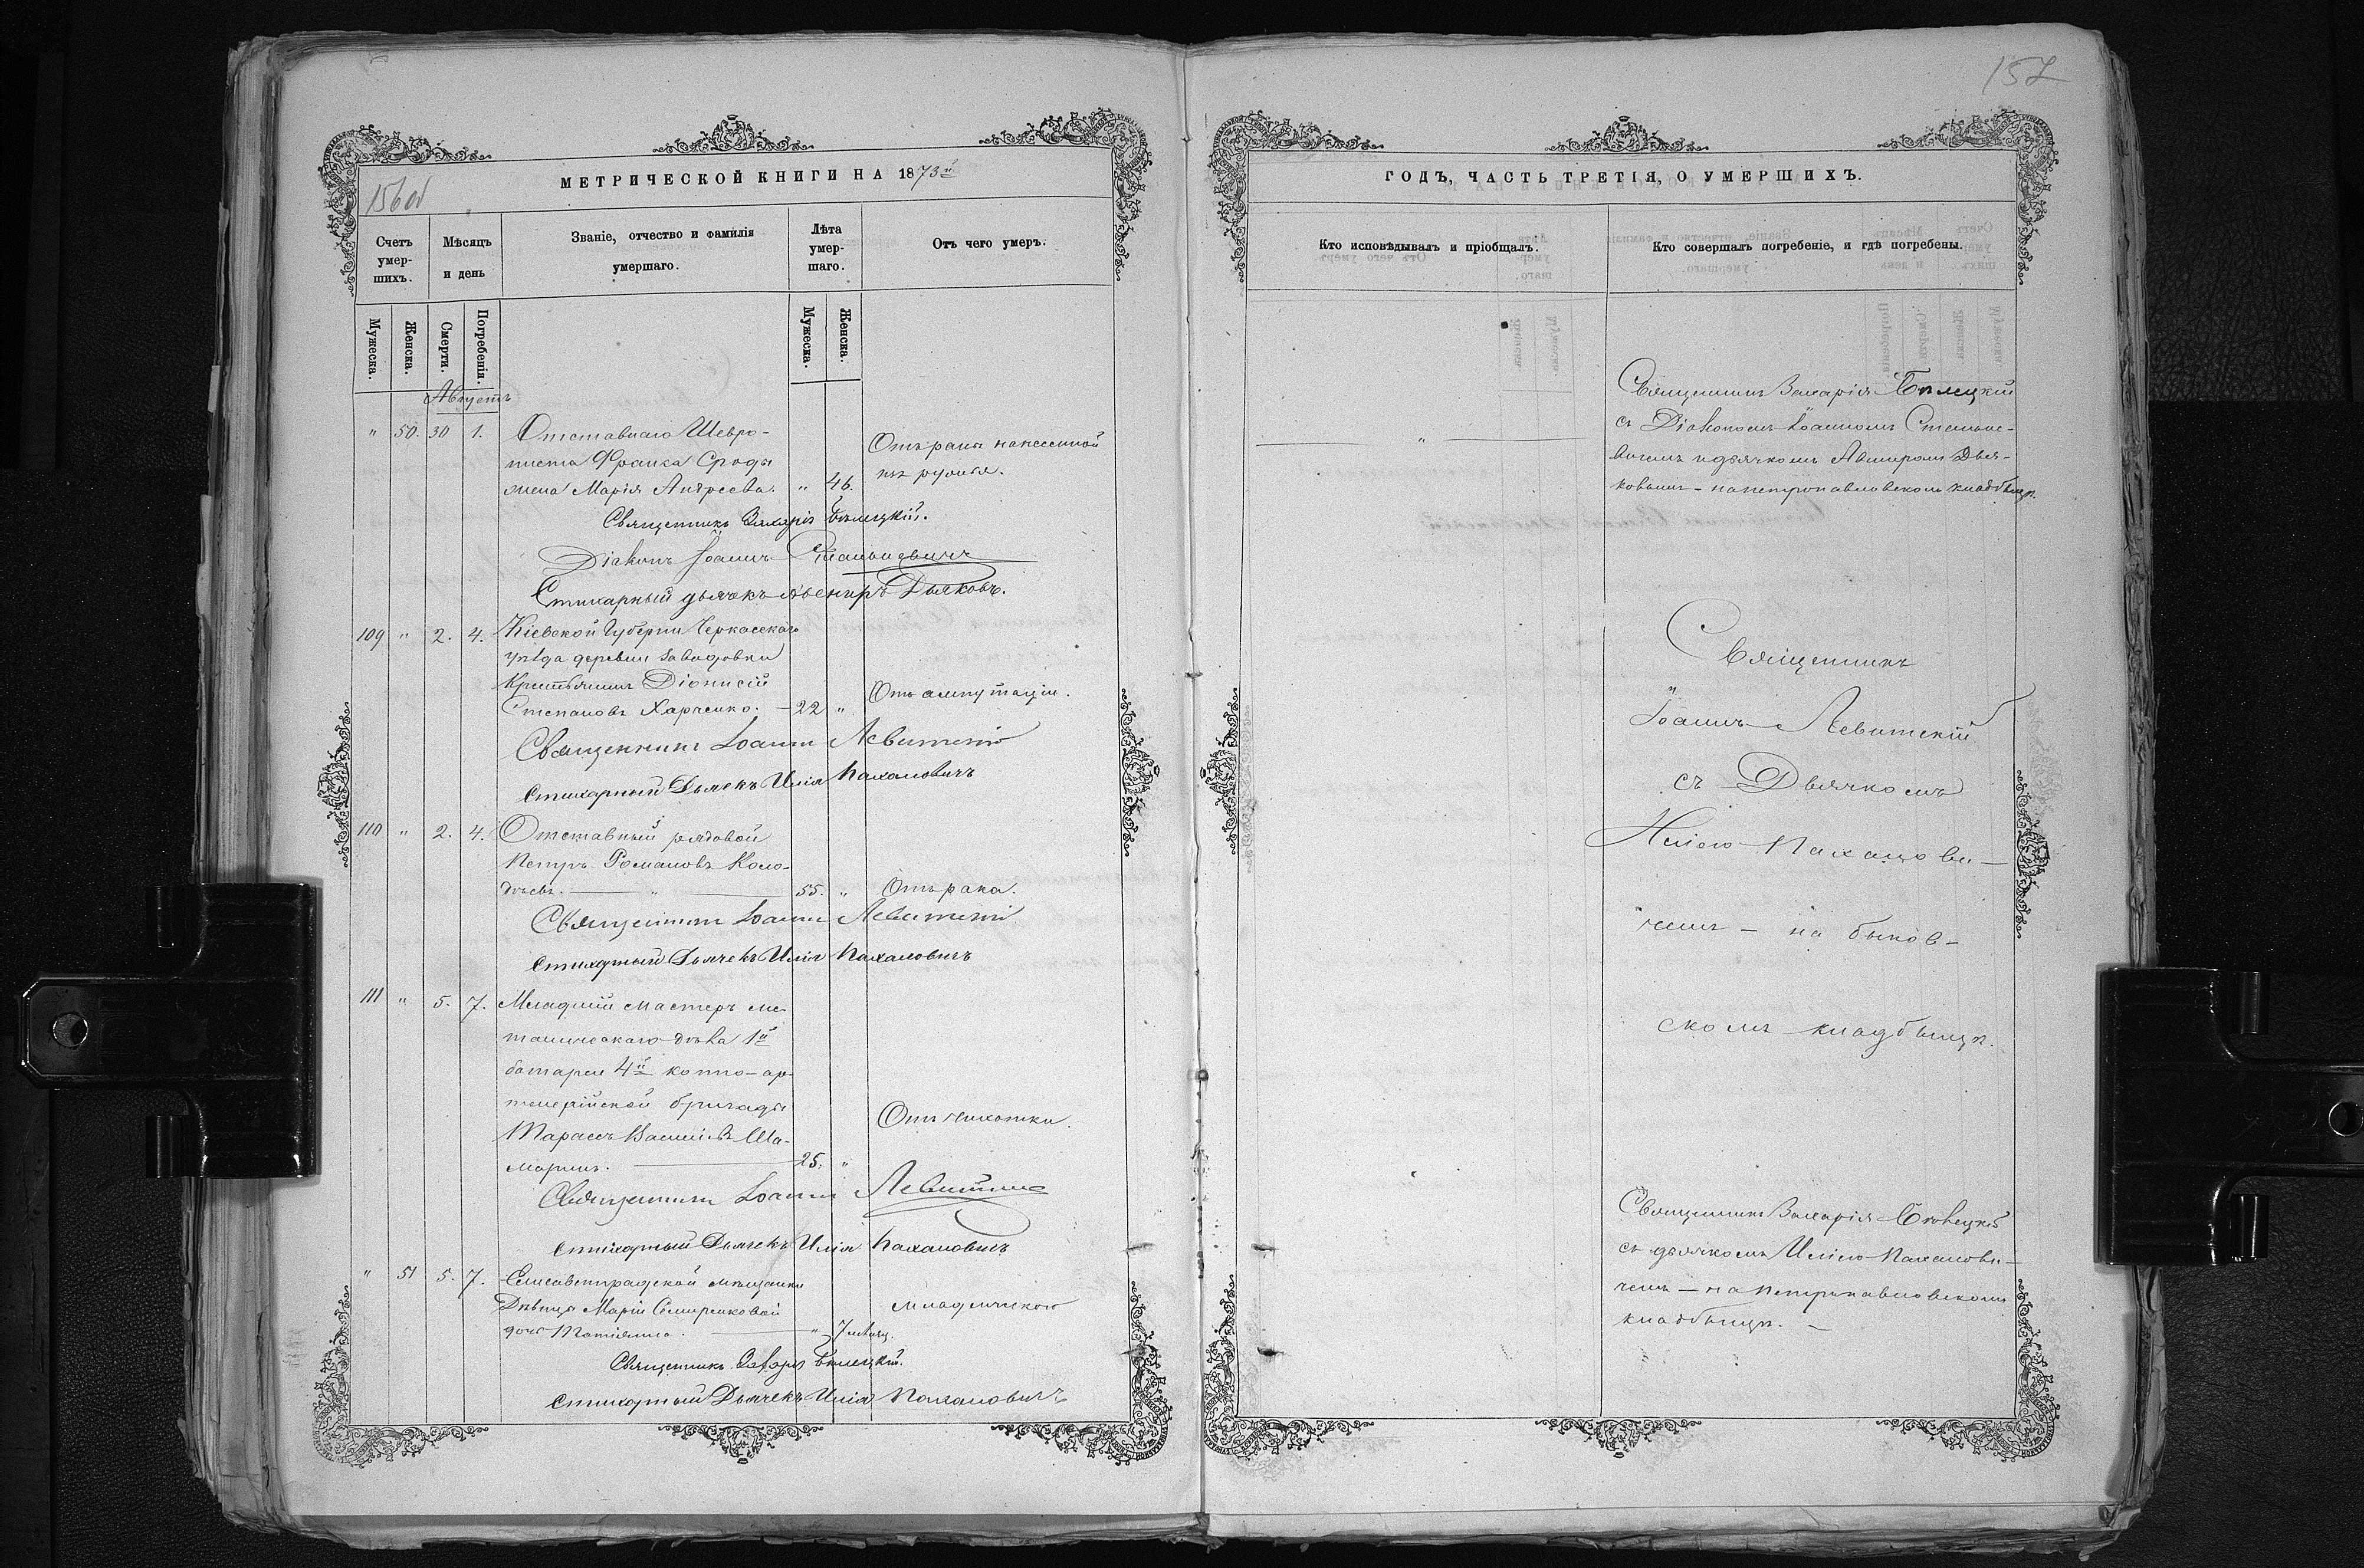 156 об
МЕТРИЧЕСКОЙ КНИГИ НА 1873й
Счетъ умер-шихъ.
Мѣсяцъ и день
Званіе, отчество и фамилія умершаго.
Лѣта умер-шаго.
Отъ чего умеръ.
Мужеска.
Женска.
Смерти.
Погребенія.
Мужеска.
Женска.
Августъ
" 50. 30 1. Отставнаго Шевро-
ниста Франка Сроды
жена Марія Андреева. " 46.
Отъ раны нанесенной
изъ ружья.
Священникъ Захарія Бѣлецкій.
Діаконъ Іоаннъ
Стихарный дьячекъ Авениръ Дьяковъ.
109 " 2. 4. Кіевской Губерніи Черкасскаго
уѣзда деревни Завадовки
Крестьянинъ Діонисій
Степановъ Харченко. 22 " Отъ ампутаціи.
Священникъ Іоаннъ Левитскій
Стихарный Дьячекъ Илія Пахаловичъ
110 " 2. 4. Отставный рядовой
Петръ Романовъ Коло-
дѣевъ. " 55. " Отъ рака.
Священникъ Іоаннъ Левитскій
Стихарный Дьячекъ Илія Пахаловичъ
111 " 5. 7. Младшій мастеръ ме-
таническаго дѣла 1й
батареи 4й конно-ар-
тилерійской бригады
Тарасъ Васильевъ Ша-
маринъ. 25. " Отъ чихотки.
Священникъ Іоаннъ Левитскій
Стихарный Дьячекъ Илія Пахаловичъ
" 51 5. 7. Елисаветградской мѣщанки
Дѣвицы Маріи Семиренковой
дочь Татіяна. " 7 мѣсяц.
младенческою
Священникъ Захарія Бѣлецкій.
Стихарный Дьячекъ Илія Пахаловичъ
157
ГОДЪ, ЧАСТЬ ТРЕТІЯ, О УМЕРШИХЪ.
Кто исповѣдывалъ и пріобщалъ.
Кто совершалъ погребеніе, и гдѣ погребены.
"
Священникъ Захарія Бѣлецкій
съ Діакономъ Іоанномъ
и дьячкомъ Авениромъ Дья-
ковымъ - на петропавловскомъ кладбищѣ.
Священникъ
Іоаннъ Левитскій
съ Дьячкомъ
Иліею Пахалови-
чемъ - на быков-
скомъ кладбищѣ.
Священникъ Захарія Бѣлецкій
съ дьячкомъ Иліею Пахалови-
чемъ - на петропавловскомъ
кладбищѣ. -